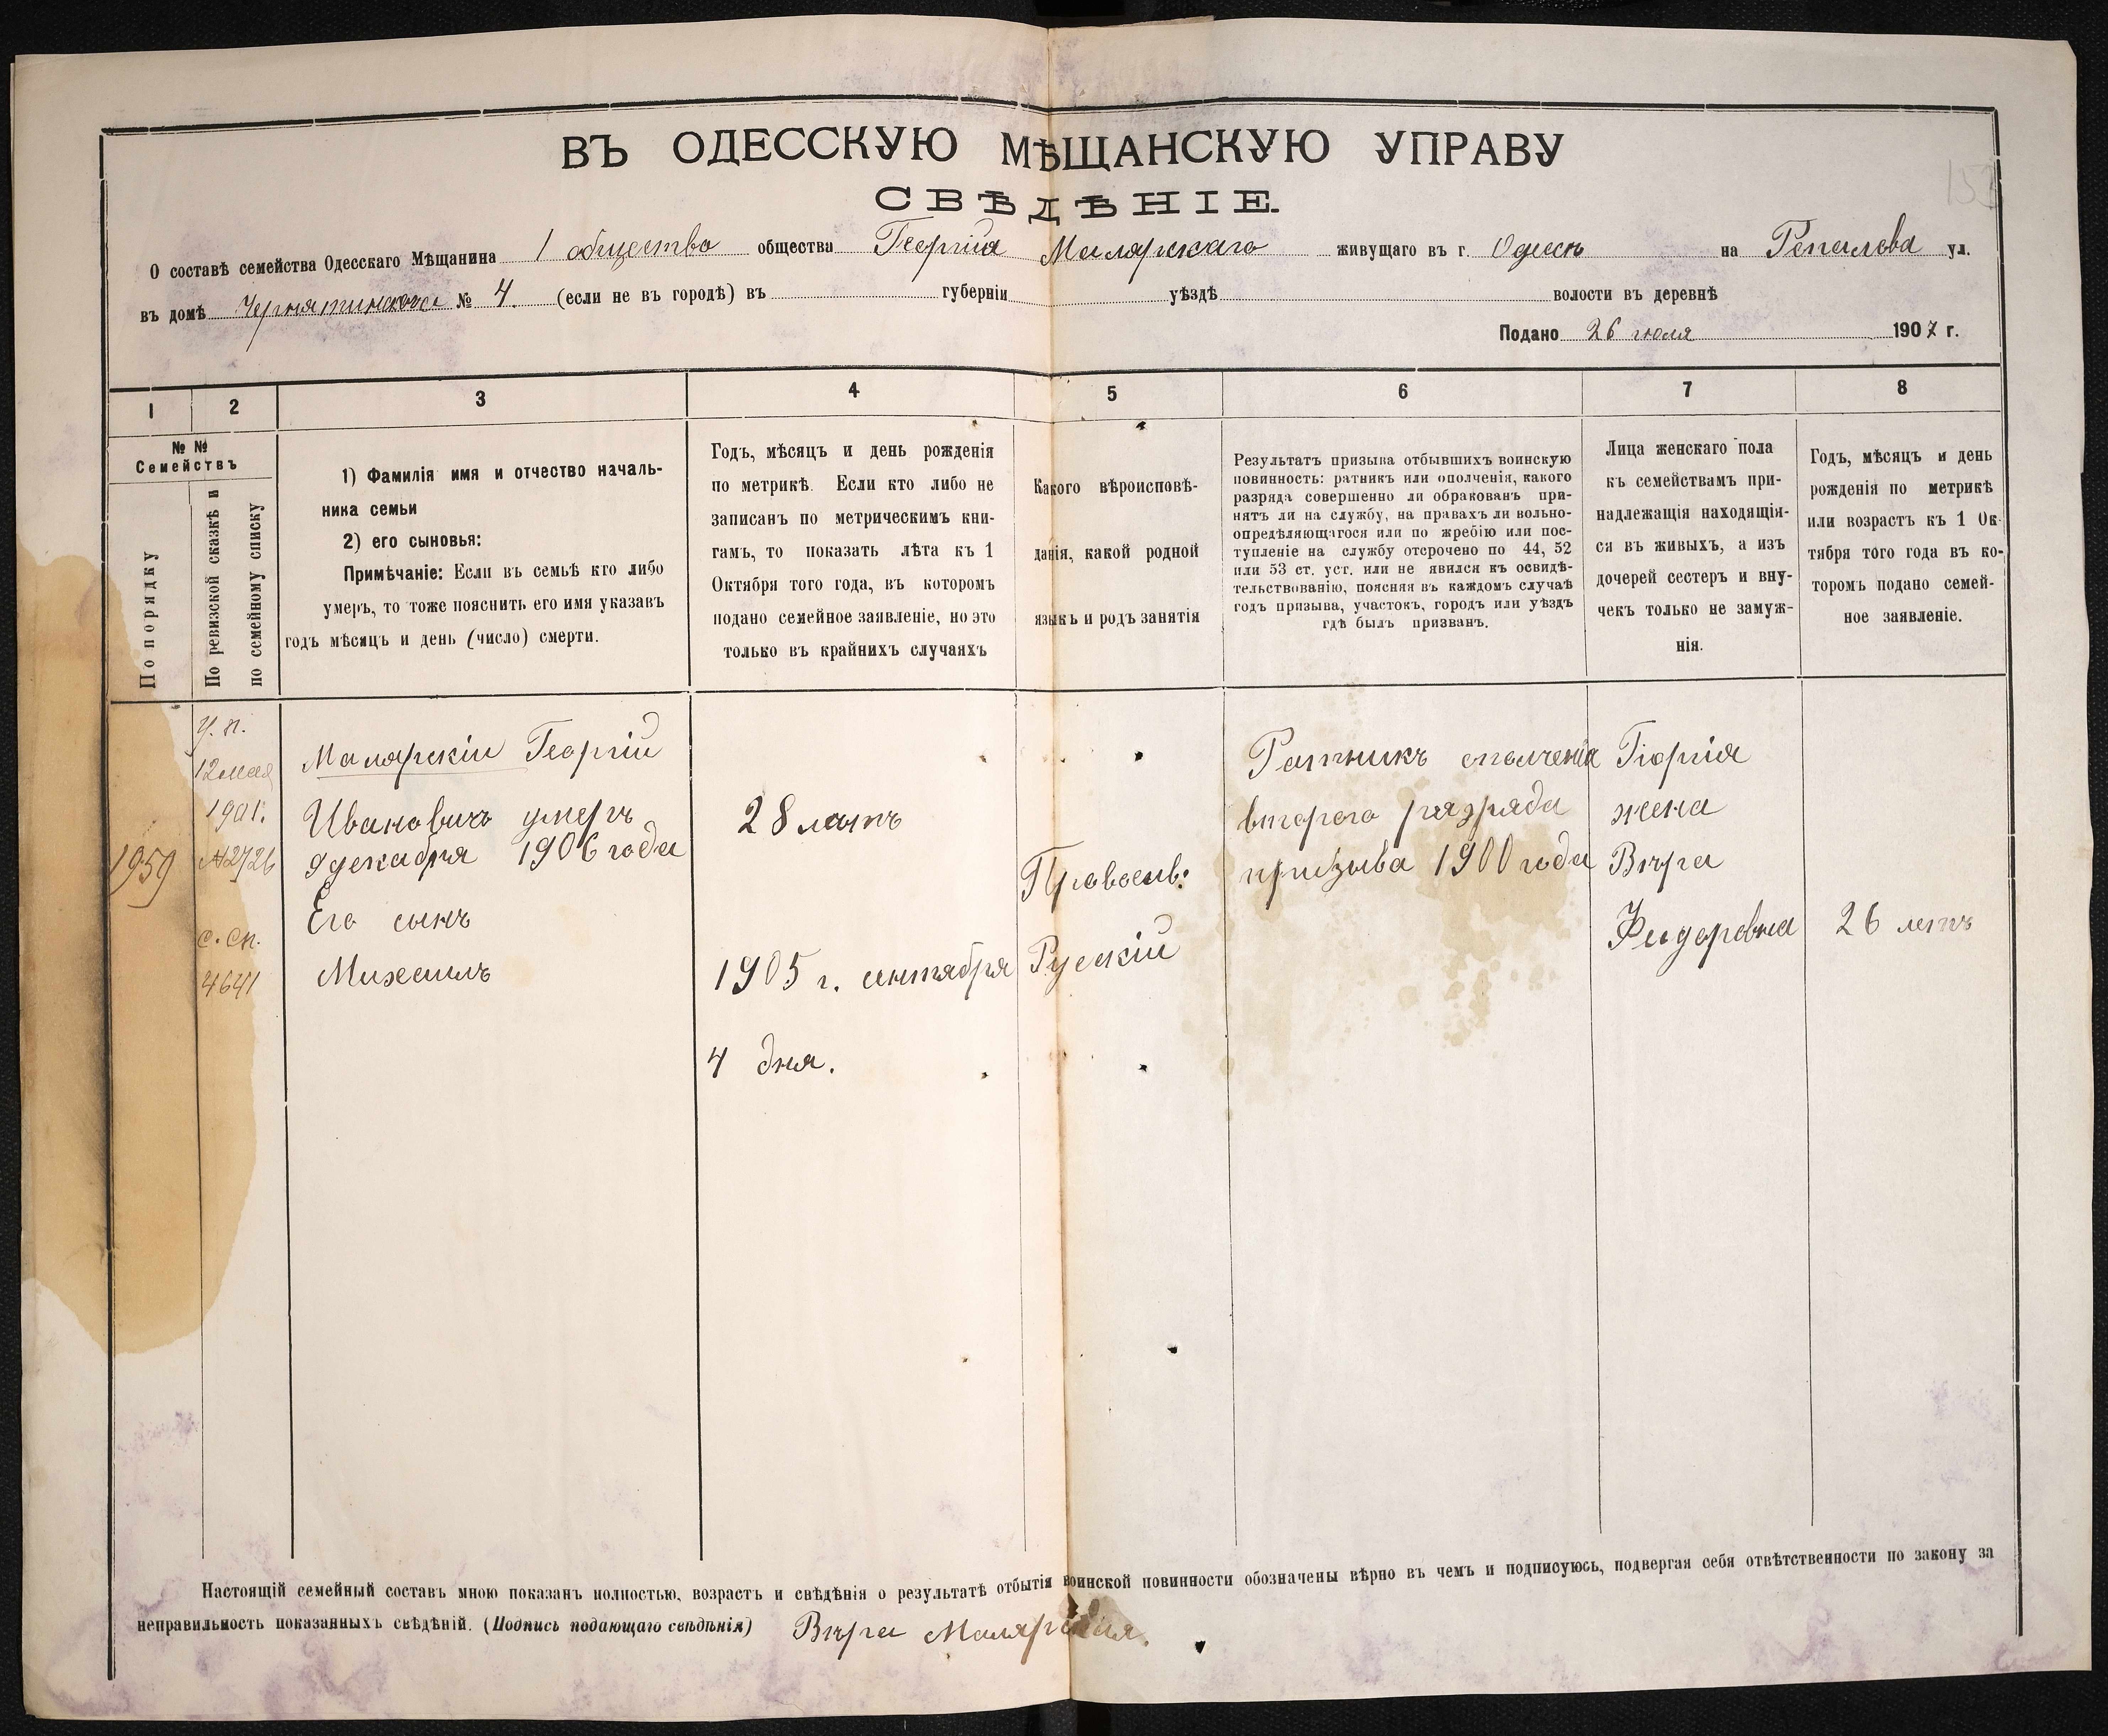 ВЪ ОДЕССКУЮ МѢЩАНСКУЮ УПРАВУ
СВѢДѢНІЕ.
О составѣ семейства Одесскаго Мѣщанина 1 общество общества Георгія Малярскаго живущаго въ г. Одессѣ на Репилева ул.
въ домѣ Чернятинскаго № 4. (если не въ городѣ) въ губерніи уѣздѣ волости въ деревнѣ
Подано 26 июля 1907 г.
1 2 3 4 5 6 7 8
№ №
Семействъ
По порядку
По ревизской сказкѣ и
по семейному списку
1) Фамилія имя и отчество началь-
ника семьи
2) его сыновья:
Примѣчаніе: Если въ семьѣ кто либо
умеръ, то тоже пояснить его имя указавъ
годъ мѣсяцъ и день (число) смерти.
Годъ, мѣсяцъ и день рожденія
по метрикѣ. Если кто либо не
записанъ по метрическимъ кни-
гамъ, то показать лѣта къ 1
Октября того года, въ которомъ
подано семейное заявленіе, но это
только въ крайнихъ случаяхъ
Какого вѣроисповѣ-
данія, какой родной
языкъ и родъ занятія
Результатъ призыва отбывшихъ воинскую
повинность: ратникъ или ополченія, какого
разряда совершенно ли обракованъ при-
нятъ ли на службу, на правахъ ли вольно-
опредѣляющагося или по жребію или пос-
тупленіе на службу отсрочено по 44, 52
или 53 ст. уст. или не явился къ освидѣ-
тельствованію, поясняя въ каждомъ случаѣ
годъ призыва, участокъ, городъ или уѣздъ
гдѣ былъ призванъ.
Лица женскаго пола
къ семействамъ при-
надлежащія находящія-
ся въ живыхъ, а изъ
дочерей сестеръ и вну-
чекъ только не замуж-
нія.
Годъ, мѣсяцъ и день
рожденія по метрикѣ
или возрастъ къ 1 Ок-
тября того года въ ко-
торомъ подано семей-
ное заявленіе.
1959
у. п.
12 мая
1901.
№2726
с. сп.
4641
Малярскіи Георгіи
Ивановичъ умеръ
9 декабря 1906 года
Его сынъ
Михаилъ
28 летъ
1905 г. сентября
4 дня.
Правосл:
Русскій
Ратникъ ополченія
втораго разряда
призыва 1900 года
Гіоргія
жена
Вѣра
Федоровна
26 летъ
Настоящій семейный составъ мною показанъ полностью, возрастъ и свѣдѣнія о результатѣ отбытія воинской повинности обозначены вѣрно въ чемъ и подписуюсь, подвергая себя отвѣтственности по закону за
неправильность показанныхъ свѣдѣній. (Подпись подающаго свѣдѣнія) Вѣра Малярская.